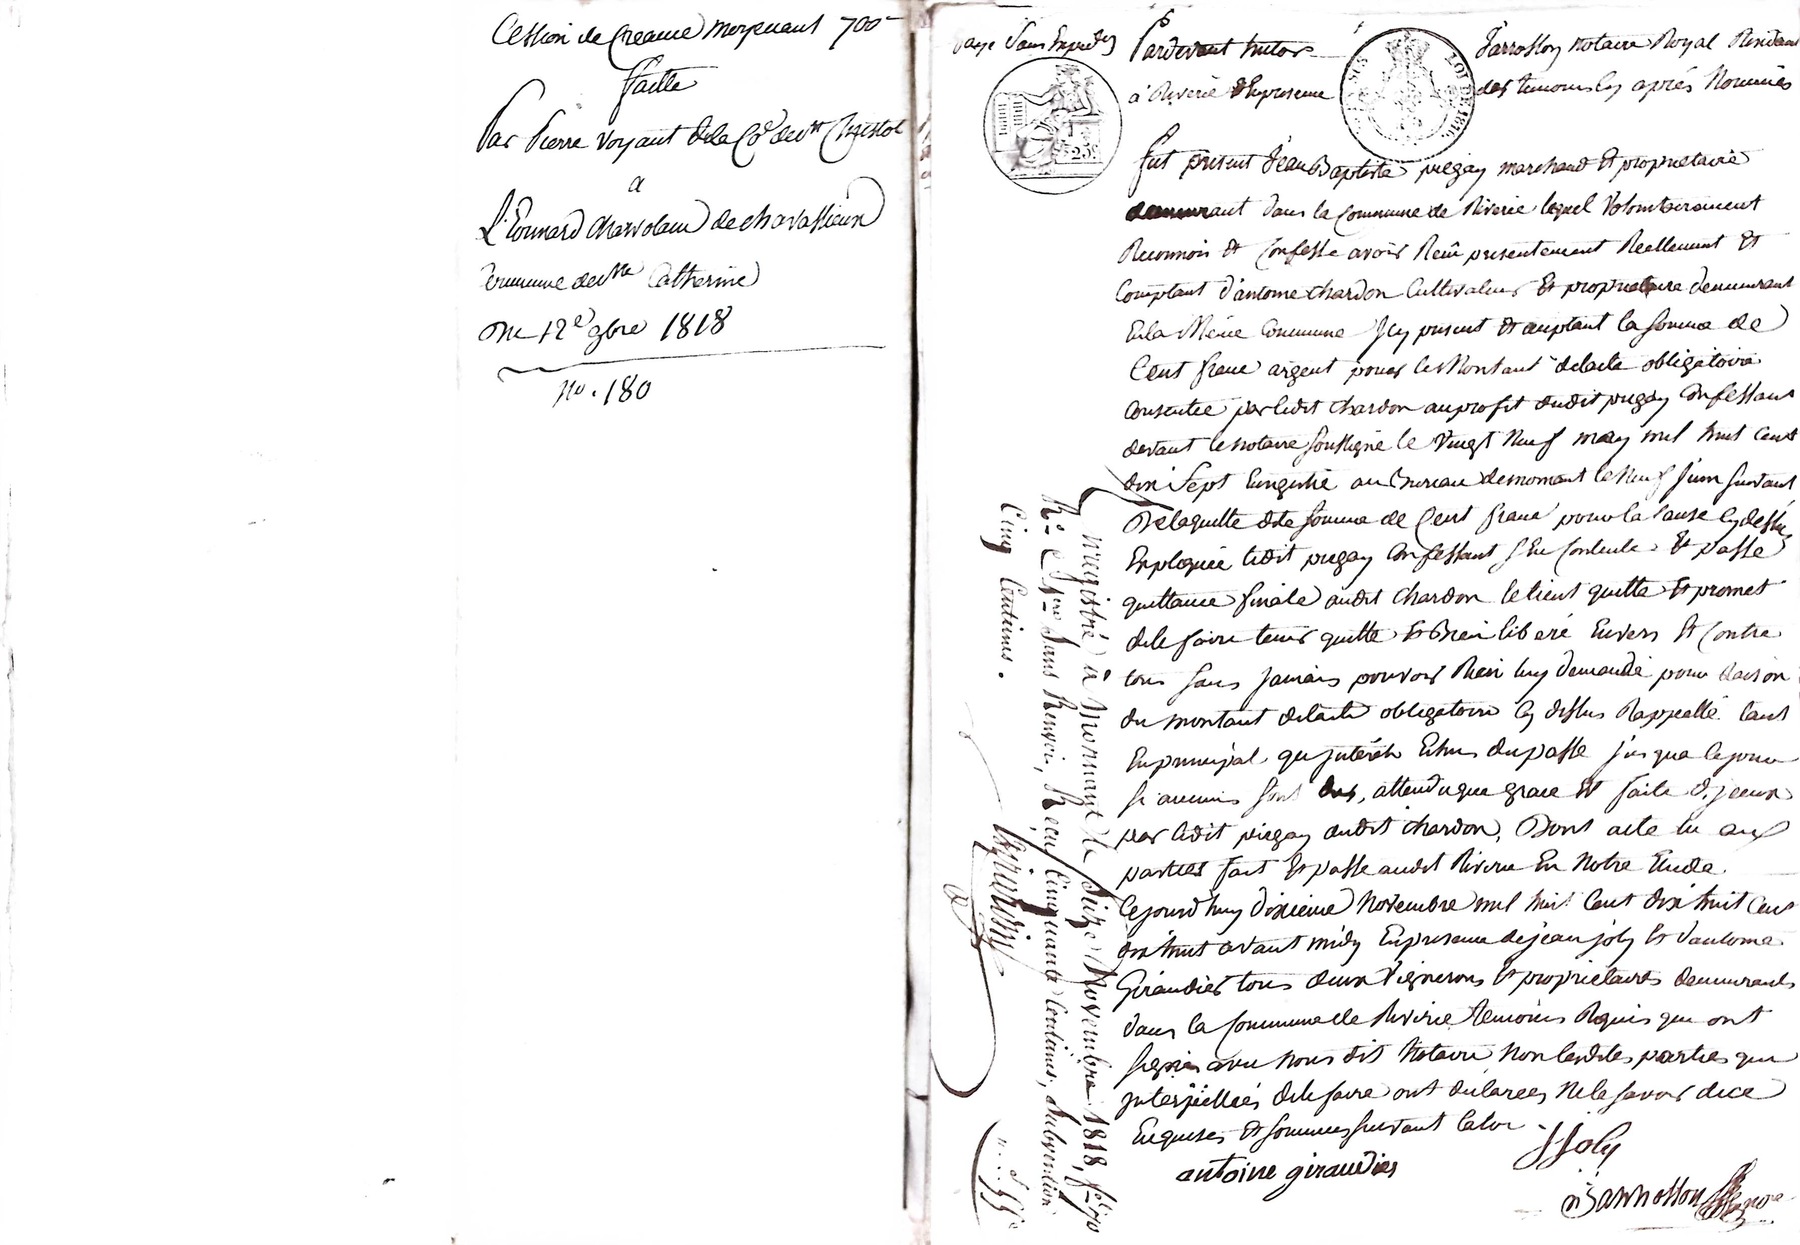 Cession de Creance morpenant 700
faitte
Par Pierre voyant de la Co^e de St Christol
a
Léonnard de chavassieux
Commune de Ste Catherine
Du 12^e 9bre 1818
No. 180
paye Sans Expedon
Pardevant Jarrosson notaire Royal Residant
à Riverie & En presence des temoins Cy après Nommés
fut present Jean Baptiste piegay marchand Et proprietaire
demeurant dans la Commune de Riverie lequel Volontairement
Reconnois Et Confesse avoir Reçû presentement Reellement Et
Comptant d'antoine chardon Cultivateur Et proprietaire demeurant
En la Même Commune Icy present Et acceptant la Somme de
Cent franc argent pour le Montant de lacte obligatoire
Consentie par ledit chardon au profit dudit piegay Confessant
devant le notaire Soussigné le Vingt Neuf may mil huit Cent
dix Sept Enregistré au Bureau de mornant le Neuf Juin Suivant
De laquelle dite Somme de Cent franc pour la Cause Cy dessus
Expliquée ledit piegay Confessant Sen Contente Et passe
quittance finale audit chardon le tient quitte Et promet
de le faire tenir quitte Et Bien libéré Envers Et Contre
tous Sans Jamais pouvoir Rien luy demandé pour Raison
du montant de lacte obligatoire Cy dessus Rappellé tant
En principal qu'Jnterêts Echus du passe jusqua Ce jour
Si aucuns Sont dus, attendu que grace Et faite d'jceux
par ledit piegay audit chardon, Dont acte lu aux
parties fait Et passe audit Riverie En Notre Etude
Cejourd'huy dixieme Novembre mil huit Cent dix huit Cent
dix huit avant midy En presence de jean joly Et d'antoine
Giraudier tous deux Vignerons Et proprietaires demeurants
dans la Commune de Riverie temoins Requis qui ont
Signés avec Nous dit Notaire Non lesdites parties qui
Jnterpellées de le faire ont déclarées Ne le Savoir de ce
Enquises Et Sommées Suivant la loi.
antoine giraudier
J Joly
Jarrosson
Enregistré à Mornant le Seize Novembre 1818, f° 70
R° C 1ere Sans Renvoi, Reçu Cinquante Centimes, Subvention
Cinq Centimes.